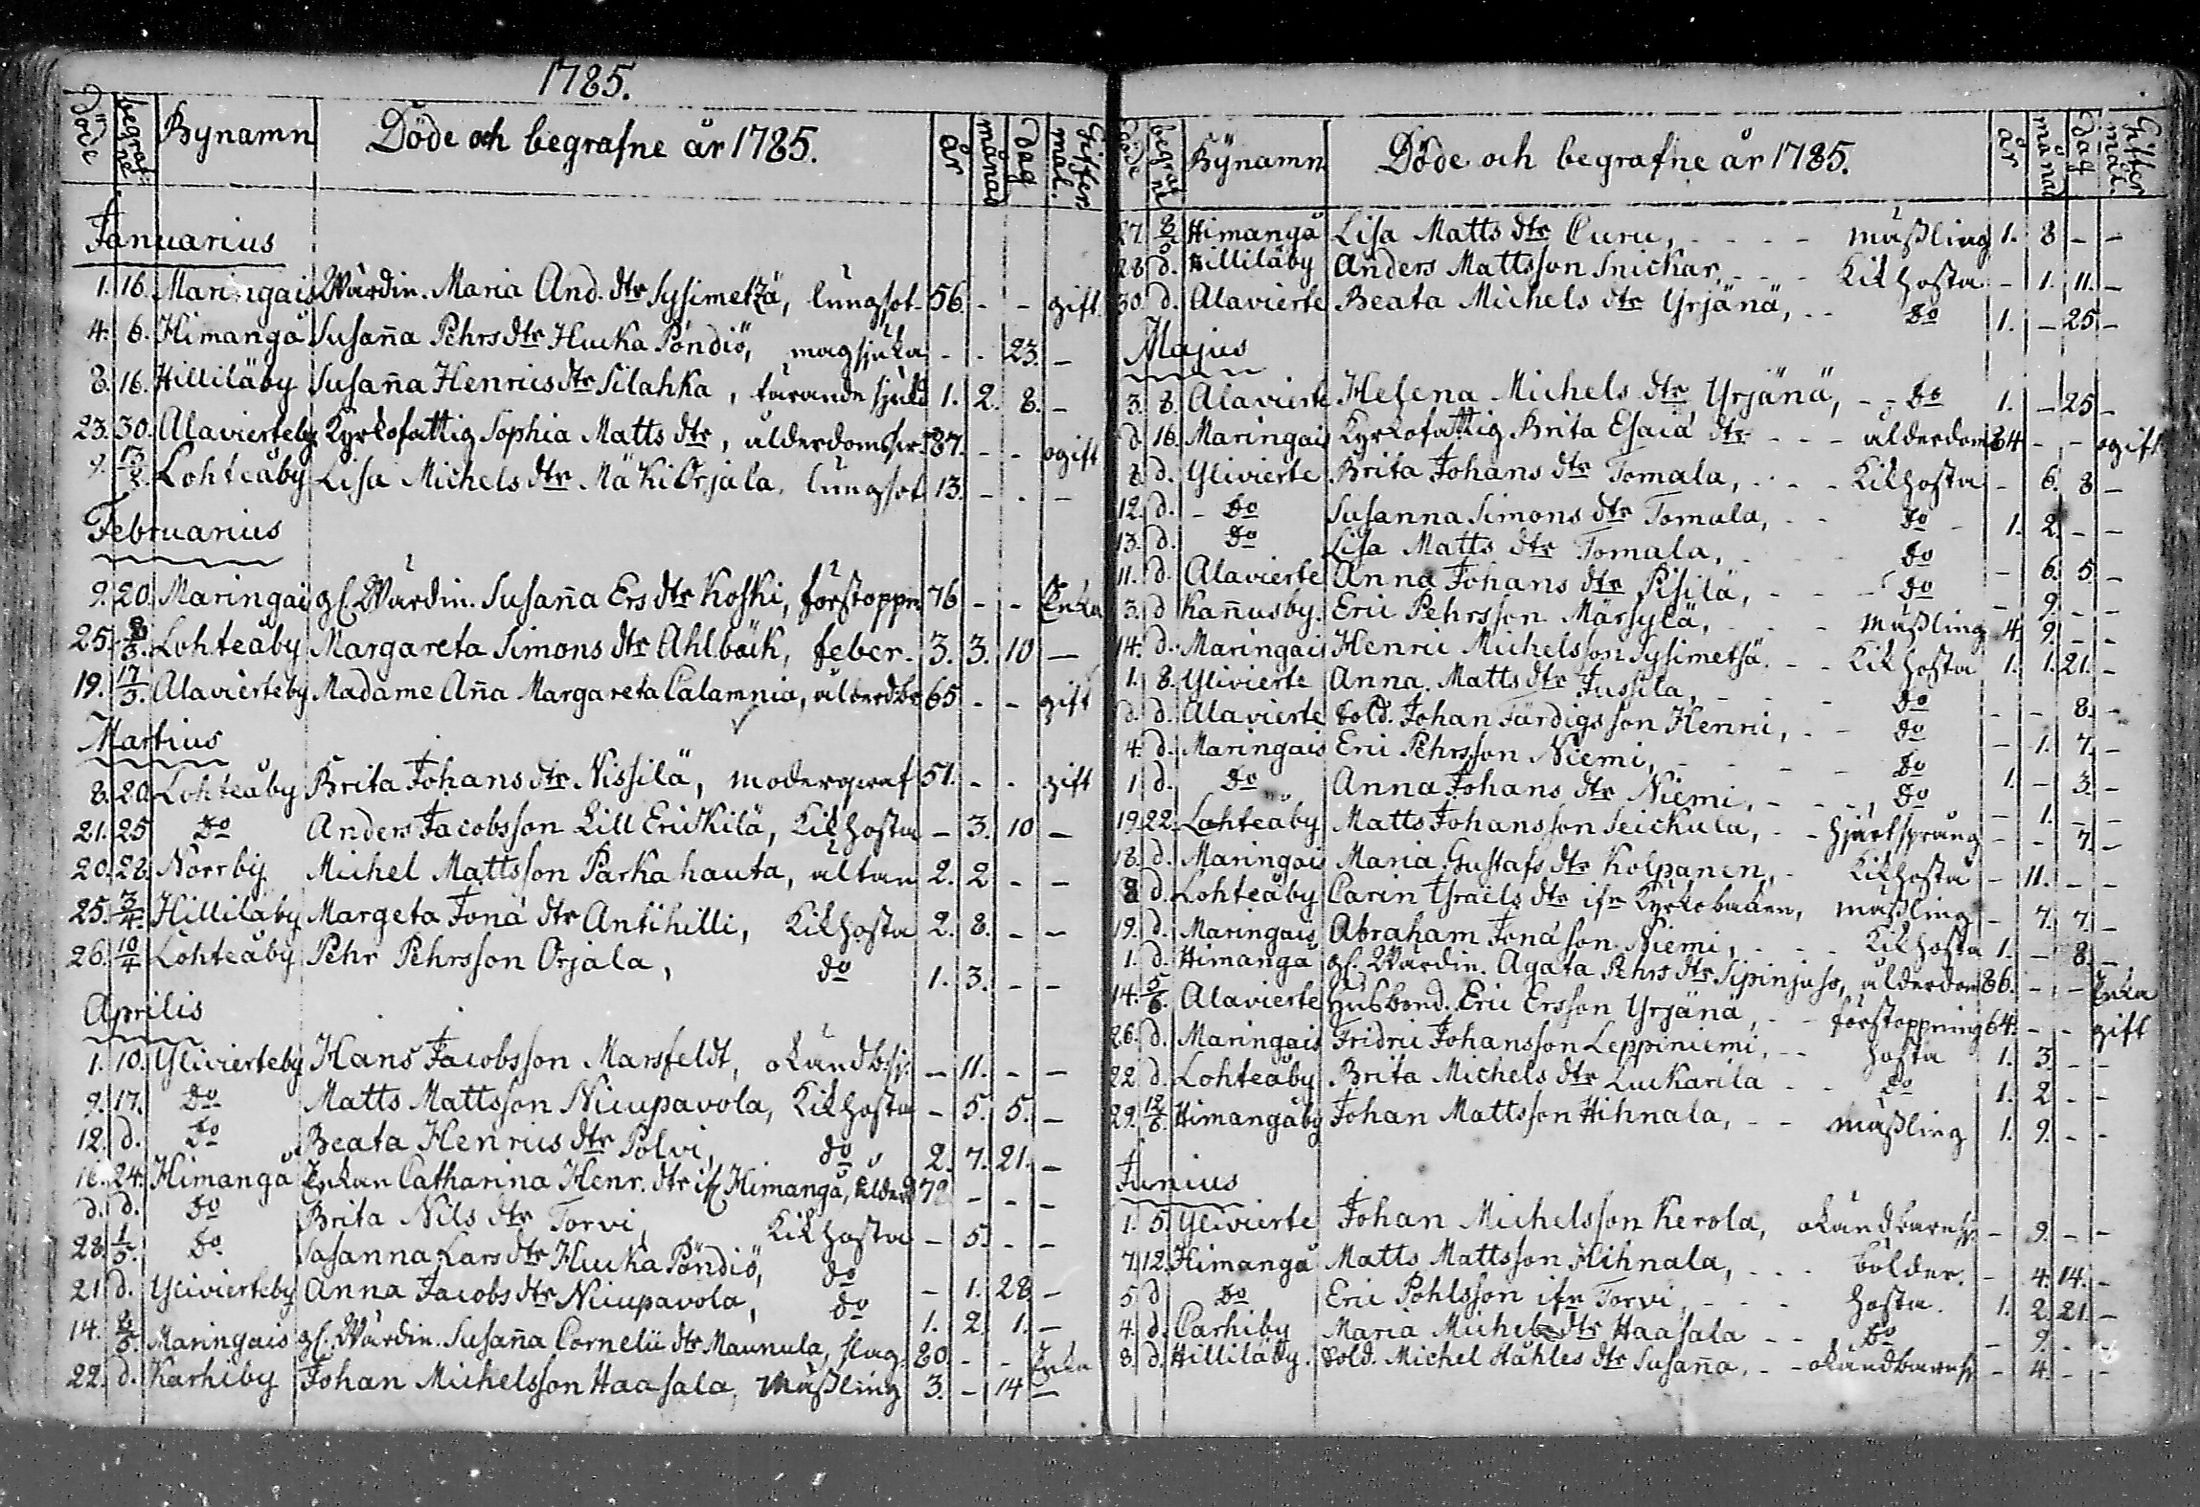 1785.
Döde begrafne Bynamn Döde och begrafne år 1785. år månad dag Giftermål.
Januarius
1. 16. Maringais Wärdin. Maria And. dtr Sysimetzä, lungsot 56. - - gift
4. 6. Himangå Susaña Pehrs dtr Huika Pöndiö, magsjuka - - 23. -
8. 16. Hillilåby Susaña Henrics dtr Silahka, tärande sjukd 1. 2. 8. -
23. 30. Alavierteby Kyrkofattig Sophia Matts dtr, ålderdoms 87. - - ogift
9. 13/2. Lohteåby Lisa Michels dtr Mäki Orjala, lungsot 13. - - -
Februarius
9. 20. Maringais gl. Wärdin. Susaña Ers dtr Koski, förstoppn 76 - - Enka
25. 8/3. Lohteåby Margareta Simons dtr Ahlbäck, feber. 3. 3. 10 -
19. 17/3. Alavierteby Madame Aña Margareta Calamnia, ålderdbr 65 - - gift
Martius
8. 20 Lohteåby Brita Johans dtr Nissilä, moderpraf 51. - - gift
21. 25 Do Anders Jacobsson Lill Erickilä, Kikhosta - 3. 10 -
20. 28. Norrby Michel Mattsson Parkahauta, ältan 2. 2 - -
25. 3/4. Hillilåby Margeta Jonä dtr Antihilli, Kikhosta 2. 8. - -
26. 10/4 Lohteåby Pehr Pehrsson Orjala, do 1. 3. - -
Aprilis
1. 10. Ylivierteby Hans Jacobsson Marsfeldt, okänd b.sj. - 11. - -
9. 17. Do Matts Mattsson Niuupavola, Kikhosta - 5. 5. -
12. d. Do Beata Henrics dtr Polvi, do 2. 7. 21. -
16. 24. Himangå Enkan Catharina Henr. dtr if Himangå, ålderd 72 - - -
d. d. Do Brita Nils dtr Torvi, Kikhosta - 5. - -
28. 1/5. Do Susanna Lars dtr Huika Pöndiö, do - 1. 28 -
21 d. Ylivierteby Anna Jacobs dtr Niuupavola, do 1. 2. 1. -
14. 8/5. Maringais gl. Wärdin. Susaña Cornelii dtr Maunula, slag. 80 - - Enka
22. d. Karhiby Johan Michelsson Haasala, Mäßling 3. - 14 -
Döde begrafne Bÿnamn Döde och begrafne år 1785. år månad dag Giftermål.
27. 8/5 Himangå Lisa Matts dtr Ouru, - - - mäßling 1. 8 - -
28 d. Hillilåby Anders Mattsson Snickar, - - - Kikhosta - 1. 11. -
30. d. Alavierte Beata Michels dtr Yrjänä, - - Do 1. - 25 -
Majus
3. 8. Alavierte Helena Michels dtr Yrjänä, - - Do 1. - 25 -
d. 16. Maringais Kyrkofattig Brita Esaiä dtr - - - ålderdom 84 - - ogift
8. d. Ylivierte Brita Johans dtr Tomala, - - - Kikhosta - 6. 8 -
12. d. - Do Susanna Simons dtr Tomula, - - Do - 1. 2. - -
13. d. Do Lisa Matts dtr Tomala, - - - Do - 6. 5 -
11. d. Alavierte Anna Johans dtr Pisilä, - - - Do - 9. - -
3. d Kañusby. Eric Pehrsson Märsylä, - - - mäßling 4. 9. - -
14. d. Maringais Henric Michelsson Sysimetsä. - - Kikhosta 1. 1. 21. -
1. 8. Ylivierte Anna Matts dtr Jussila, - - - Do - - 8. -
d. d. Alavierte Sold. Johan Färdigs son Henric, - - Do - 1. 7. -
4. d. Maringais Eric Pehrsson Niemi, - - - Do 1. - 3. -
1 d. Do Anna Johans dtr Niemi, - - - Do - 1. - -
19. 22. Lohteåby Matts Johansson Seickula, - - hjärtsprång - - 7. -
18. d. Maringais Maria Gustafs dtr Kolpanen, - Kikhosta - 11. - -
8 d. Lohteåby Carin Ysraels dtr ifn Kyrkobacken, mäßling - 7. 7. -
19. d. Maringais Abraham Jonä son Niemi, - - Kikhosta 1. - 8. -
1. d. Himangå gl. Wärdin. Agata Pehrs dtr Sipinjuso, ålderdom 86. - - Enka
14. 5/6. Alavierte Husbond. Eric Ersson Yrjänä, - - förstoppning 64. - - gift
26. d. Maringais Fridric Johansson Leppiniemi, - - hosta 1. 3. - -
22 d. Lohteåby Brita Michels dtr Luckarila - - do 1. 2 - -
29. 12/6. Himangåby Johan Mattsson Hihnala, - - mäßling 1. 9. - -
Junius
1. 5. Ylivierte Johan Michelsson Kerola, okändbarnsj. - 9. - -
7. 12. Himangå Matts Mattsson Hihnala, - - - bölder. - 4. 14. -
5. d Do Eric Pohlsson ifn Torvi, - - - hosta. 1. 2. 21. -
4. d. Carhiby Maria Michels dtr Haasala - - Do - 9. - -
8. d. Hillilåby. Sold. Michel Ståhles dtr Susaña, - - okändbarnsj - 4. - -